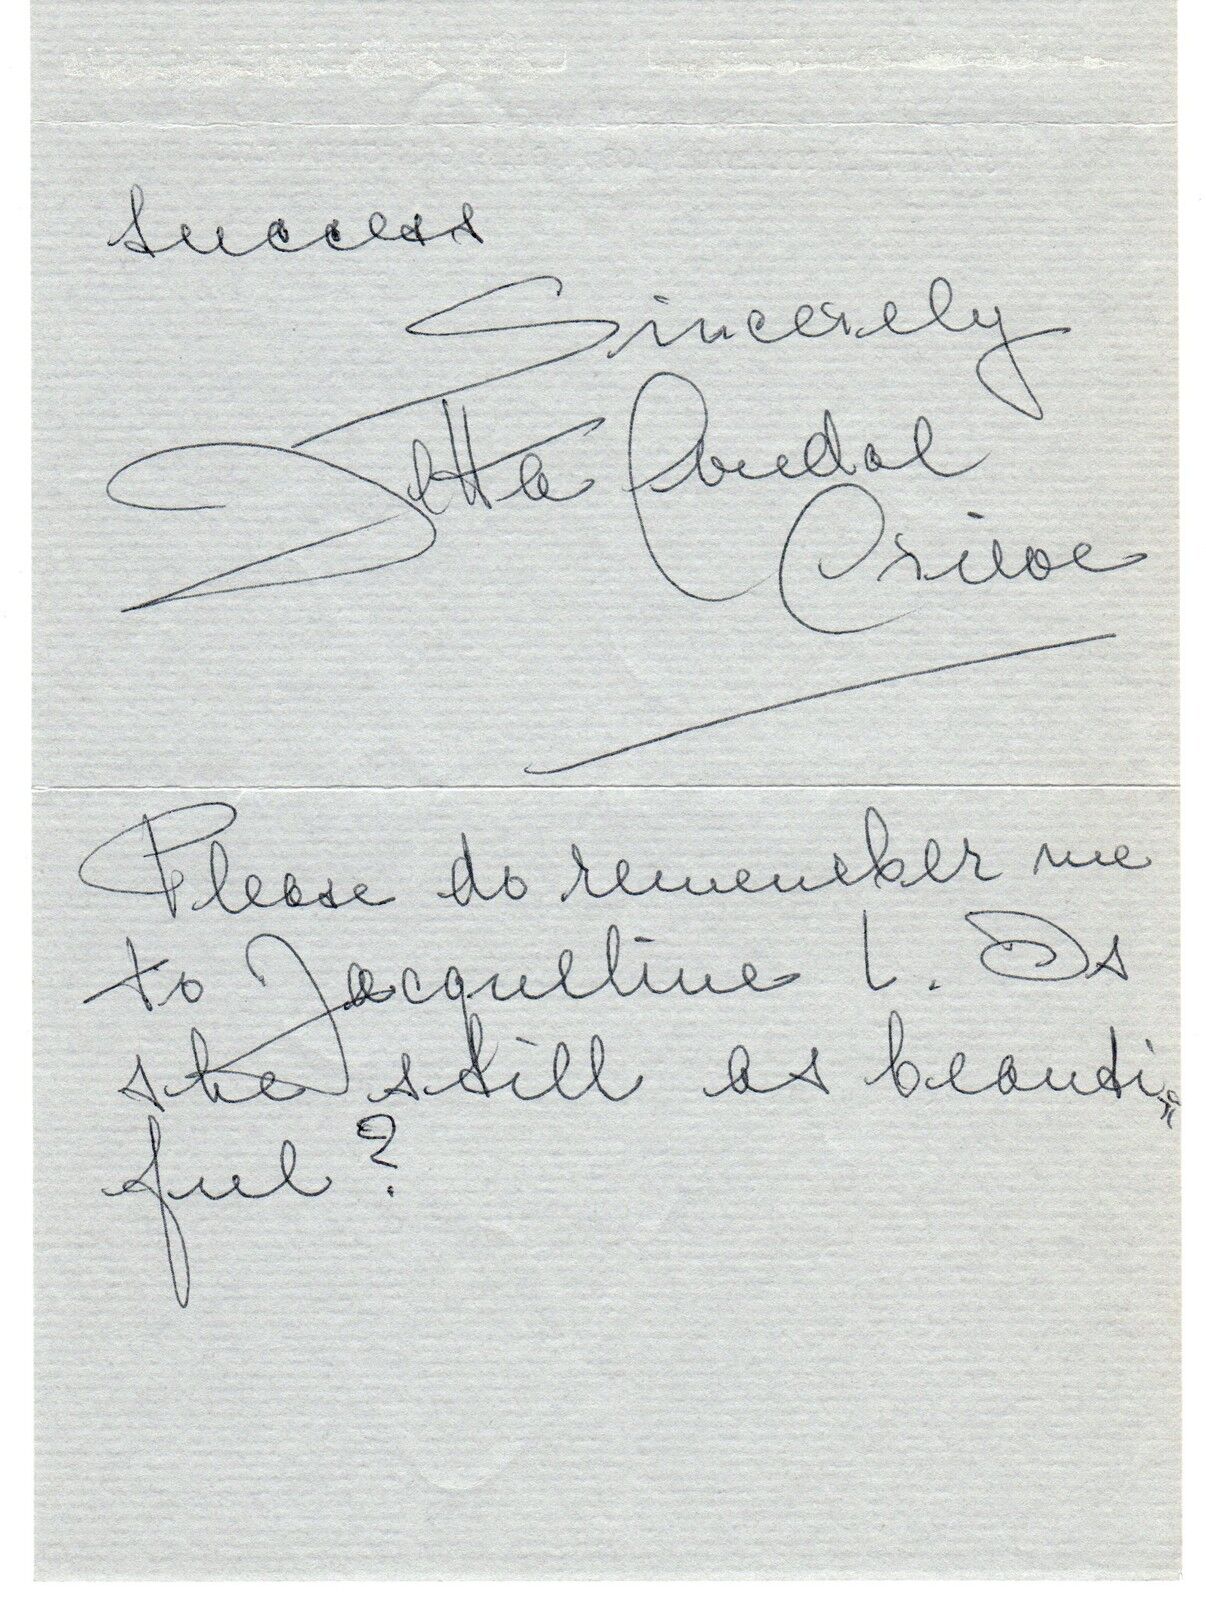 success
Sincerely
Jetta Goudal
Grieve
Please do remember me
to Jacqueline L. Is
she still as beauti=
ful?